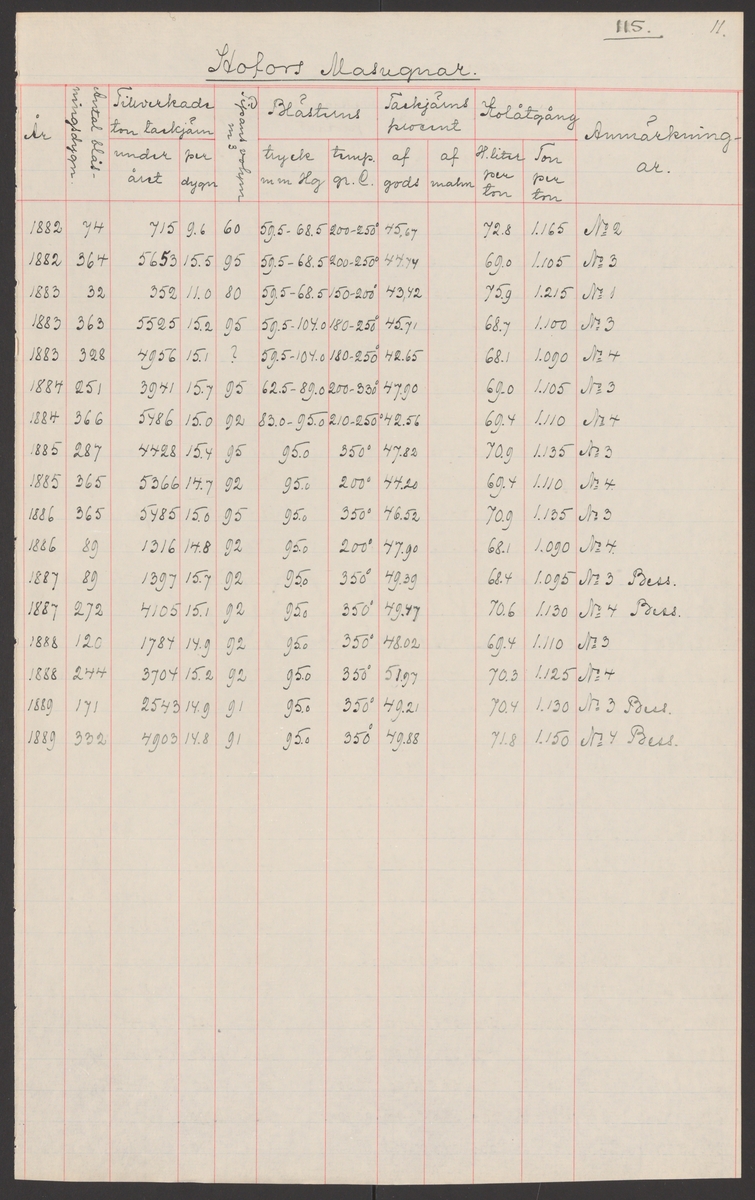 115. 11.
Hofors Masugnar.
År | Antal blåsningsdygn. | Tillverkade ton tackjärn under året | per dygn | Pipans volym m3 | Blästerns tryck mm Hg | temp. gr. C. | Tackjärns procent af gods | af malm | Kolåtgång H.liter per ton | Ton per ton | Anmärkningar.
1882 74 715 9.6 60 59.5-68.5 200-250° 45,67 72.8 1.165 No 2
1882 364 5653 15.5 95 59.5-68.5 200-250° 44.74 69.0 1.105 No 3
1883 32 352 11.0 80 59.5-68.5 150-200° 43,42 75.9 1.215 No 1
1883 363 5525 15.2 95 59.5-104.0 180-250° 45.71 68.7 1.100 No 3
1883 328 4956 15.1 ? 59.5-104.0 180-250° 42.65 68.1 1.090 No 4
1884 251 3941 15.7 95 62.5-89.0 200-330° 47.90 69.0 1.105 No 3
1884 366 5486 15.0 92 83.0-95.0 210-250° 42.56 69.4 1.110 No 4
1885 287 4428 15.4 95 95.0 350° 47.82 70.9 1.135 No 3
1885 365 5366 14.7 92 95.0 200° 44.20 69.4 1.110 No 4
1886 365 5485 15.0 95 95.0 350° 46.52 70.9 1.135 No 3
1886 89 1316 14.8 92 95.0 200° 47.90 68.1 1.090 No 4
1887 89 1397 15.7 92 95.0 350° 49.39 68.4 1.095 No 3 Bess.
1887 272 4105 15.1 92 95.0 350° 49.47 70.6 1.130 No 4 Bess.
1888 120 1784 14.9 92 95.0 350° 48.02 69.4 1.110 No 3
1888 244 3704 15.2 92 95.0 350° 58.97 70.3 1.125 No 4
1889 171 2543 14.9 91 95.0 350° 49.21 70.4 1.130 No 3 Bess.
1889 332 4903 14.8 91 95.0 350° 49.88 71.8 1.150 No 4 Bess.